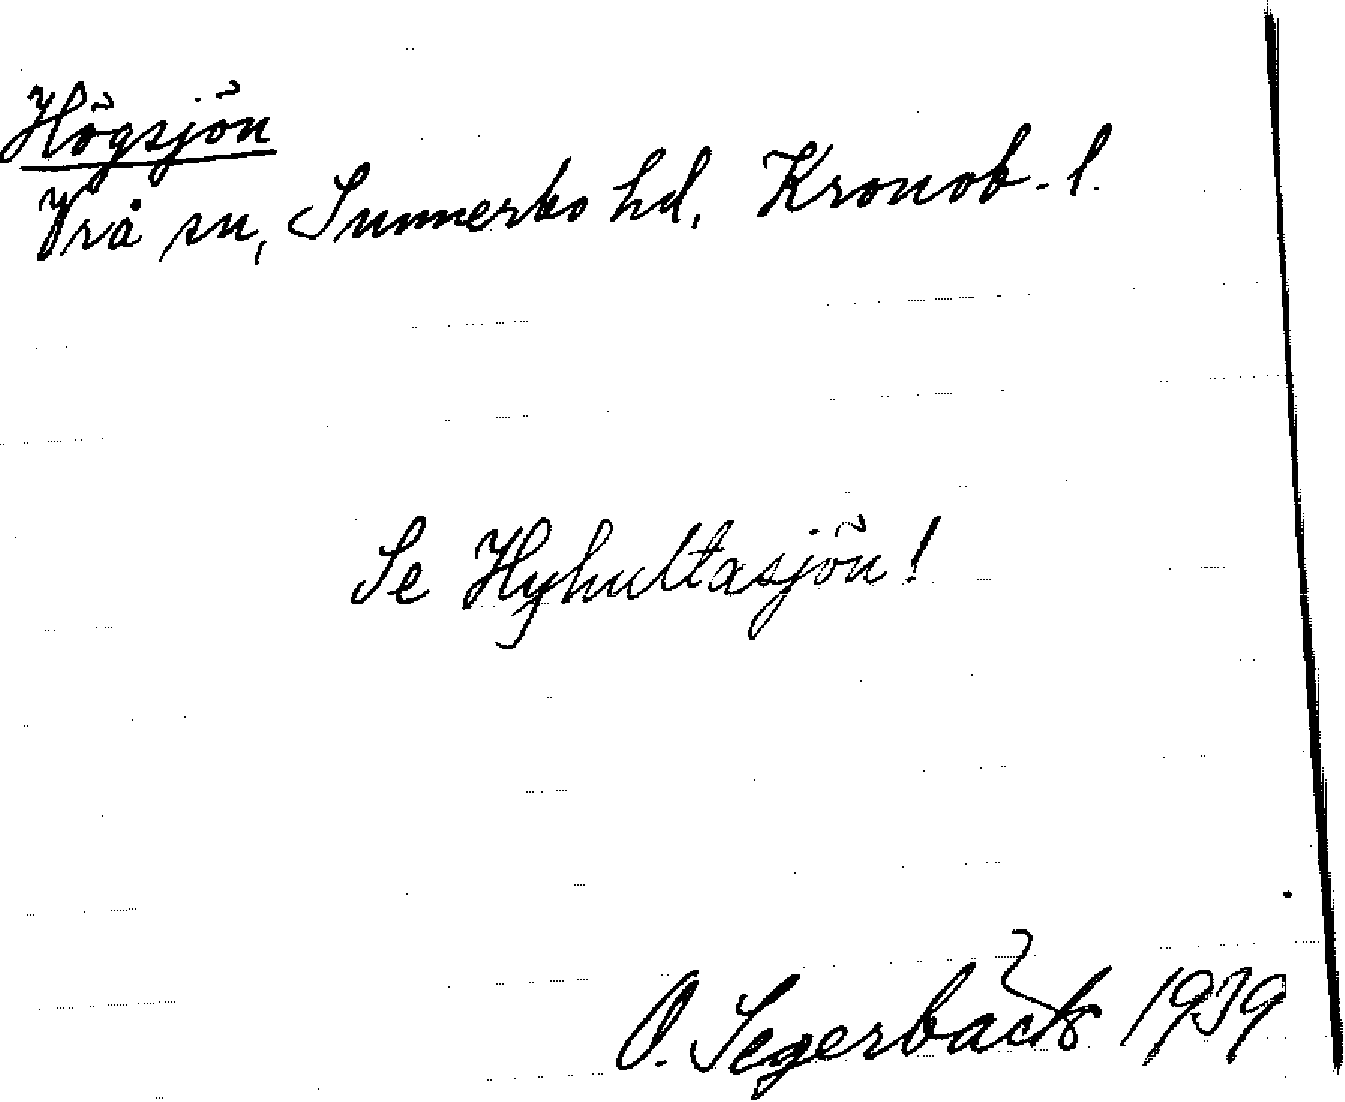 Högsjön
Vrå sn, Sunnerbo hd, Kronob. l.
Se Hyhultasjön!
O. Segerbäck 1939